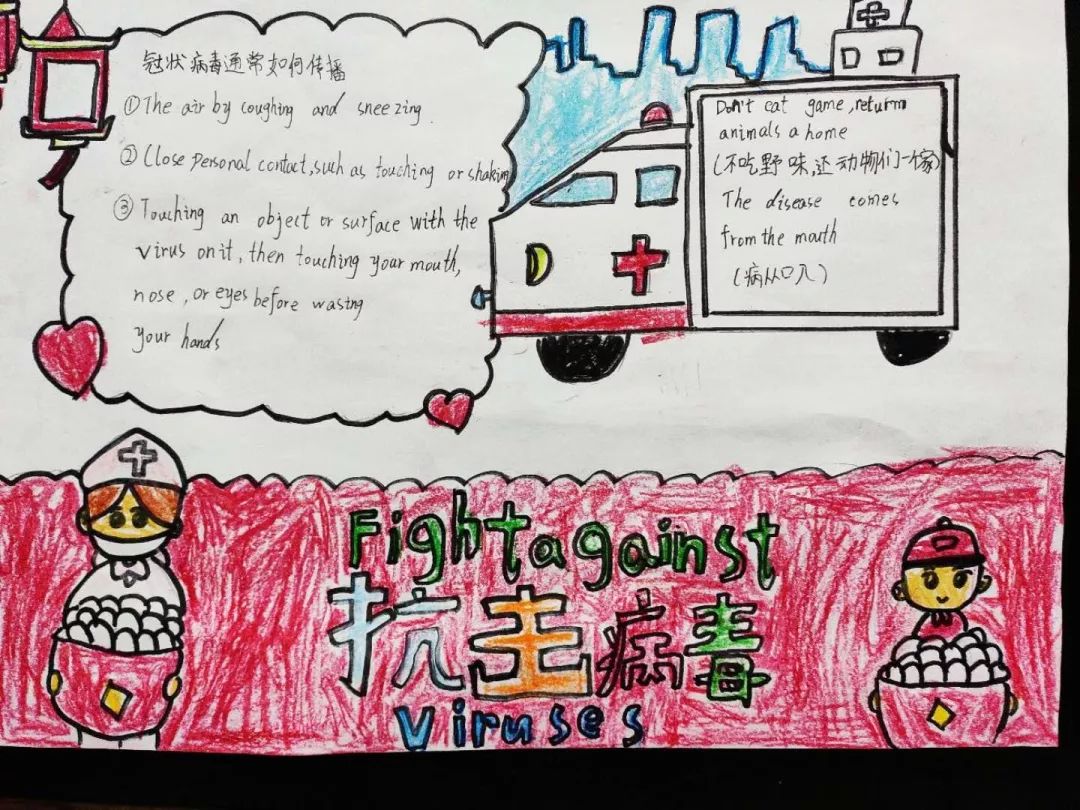 冠状病毒通常如何传播
①The air by coughing and sneezing.
②Close personal contact, such as touching or shaking
③Touching an object or surface with the
virus on it, then touching your mouth,
nose, or eyes before wasing
your hands
Don't eat game, return
animals a home
(不吃野味,还动物们一个家)
The disease comes
from the mouth
(病从口入)
Fight against
抗击病毒
Viruses